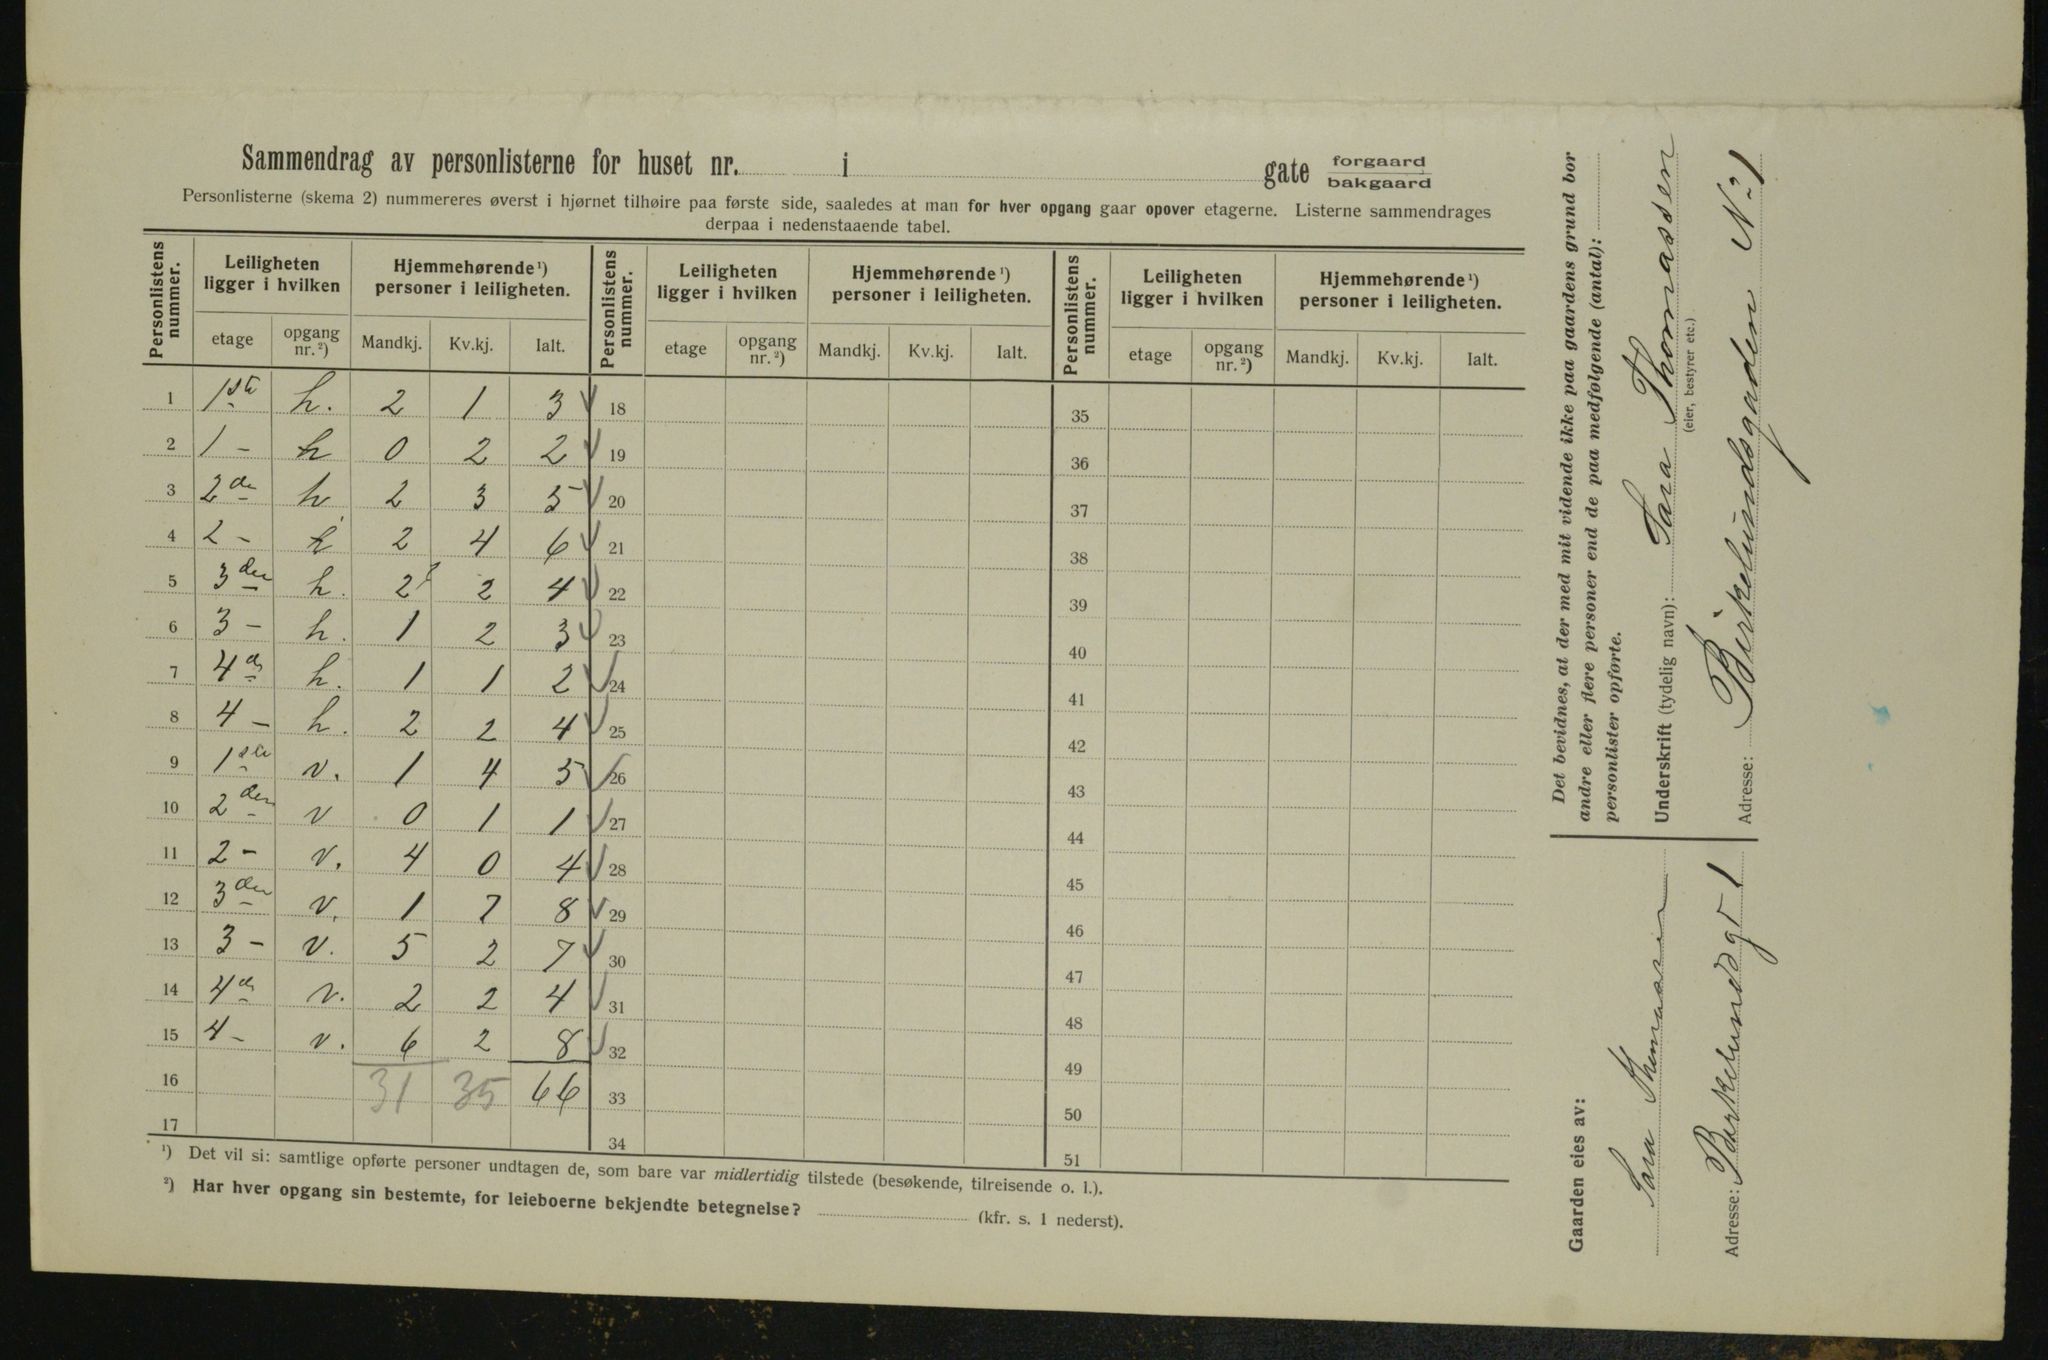 Sammendrag av personlisterne for huset nr. i gate forgaard bakgaard
Personlisterne (skema 2) nummereres øverst i hjørnet tilhøire paa første side, saaledes at man for hver opgang gaar opover etagerne. Listerne sammendrages
derpaa i nedenstaaende tabel.
Personlistens nummer. Leiligheten ligger i hvilken Hjemmehørende ¹) personer i leiligheten. Personlistens nummer. Leiligheten ligger i hvilken Hjemmehørende ¹) personer i leiligheten. Personlistens nummer. Leiligheten ligger i hvilken Hjemmehørende ¹) personer i leiligheten.
etage opgang nr. ²) Mandkj. Kv.kj. Ialt. etage opgang nr. ²) Mandkj. Kv.kj. Ialt. etage opgang nr. ²) Mandkj. Kv.kj. Ialt.
1 1ste h. 2 1 3 18 35
2 1 - h 0 2 2 19 36
3 2den h 2 3 5 20 37
4 2 - h 2 4 6 21 38
5 3den h. 2 2 4 22 39
6 3 - h. 1 2 3 23 40
7 4de h. 1 1 2 24 41
8 4 - h. 2 2 4 25 42
9 1ste v. 1 4 5 26 43
10 2den v 0 1 1 27 44
11 2 - v. 4 0 4 28 45
12 3den v. 1 7 8 29 46
13 3 - v. 5 2 7 30 47
14 4de v. 2 2 4 31 48
15 4 - v. 6 2 8 32 49
16 31 35 66 33 50
17 34 51
¹) Det vil si: samtlige opførte personer undtagen de, som bare var midlertidig tilstede (besøkende, tilreisende o. l.).
²) Har hver opgang sin bestemte, for leieboerne bekjendte betegnelse? (kfr. s. 1 nederst).
Det bevidnes, at der med mit vidende ikke paa gaardens grund bor
andre eller flere personer end de paa medfølgende (antal):
personlister opførte.
Underskrift (tydelig navn): Sara Thomassen
(eier, bestyrer etc.)
Adresse: Birkelundsgaden No 1
Gaarden eies av:
Sara Thomassen
Adresse: Birkelundsgt 1